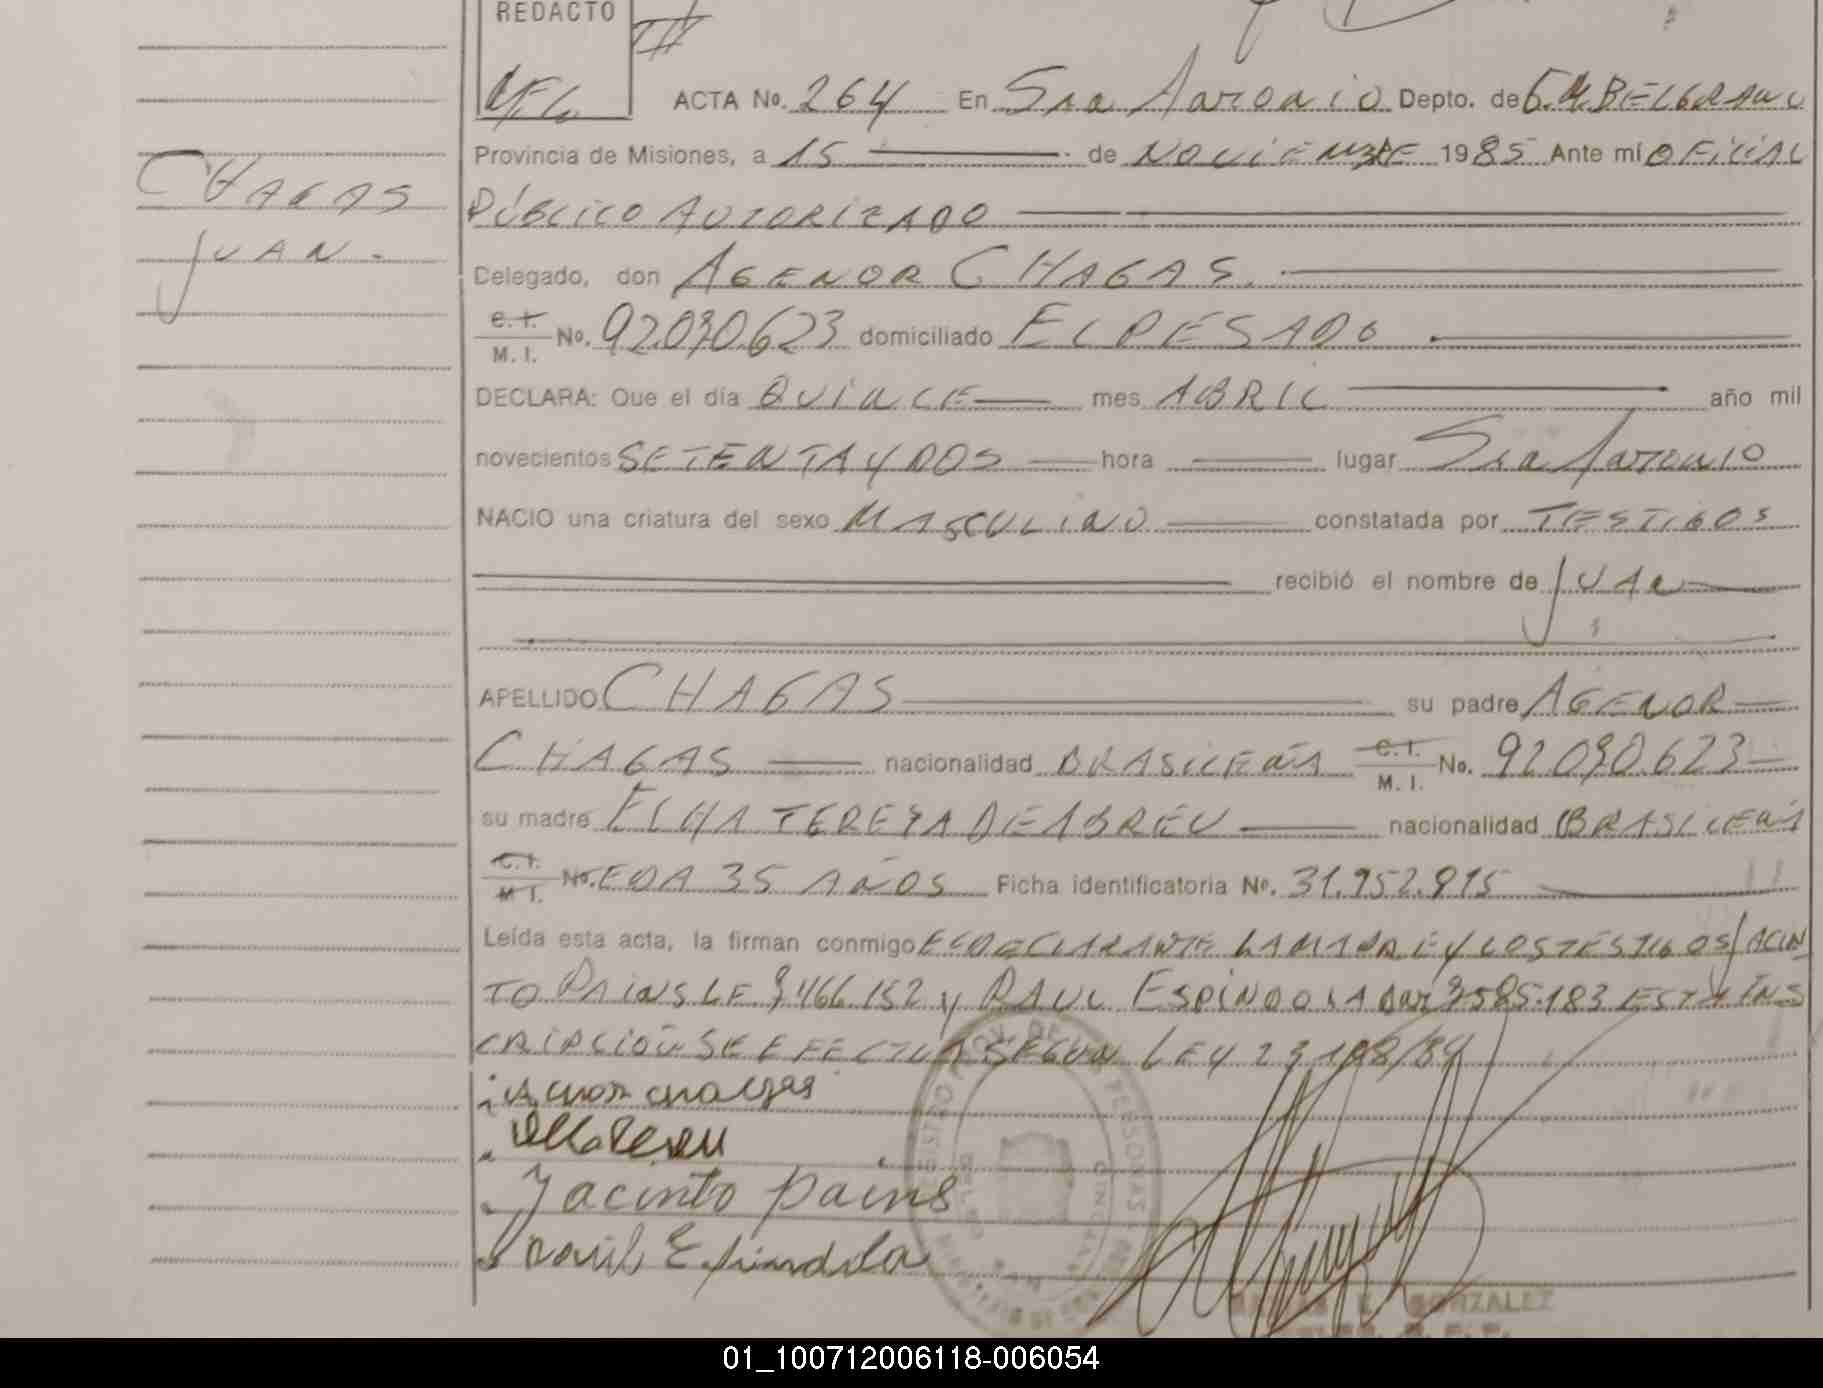 REDACTO
ACTA No. 264 En San Antonio Depto. de G. M. BELGRANO
Provincia de Misiones, a 15 de NOVIEMBRE 1985 Ante mí OFICIAL
CHAGAS
PÚBLICO AUTORIZADO
JUAN.
Delegado, don AGENOR CHAGAS.
C.I. M.I. No. 92.030.623 domiciliado EL PESADO
DECLARA: Que el día QUINCE mes ABRIL año mil
novecientos SETENTA Y DOS hora lugar San Antonio
NACIO una criatura del sexo MASCULINO constatada por TESTIGOS
recibió el nombre de JUAN
APELLIDO CHAGAS su padre AGENOR
CHAGAS nacionalidad BRASILEÑA C.I. M.I. No. 92.030.623
su madre TEREZA DE ABREU nacionalidad BRASILEÑA
C.I. M.I. No. EDA 35 AÑOS Ficha identificatoria No. 31.952.915
Leída esta acta, la firman conmigo EL DECLARANTE LA MADRE Y LOS TESTIGOS JACIN
TO PAINS LE 466.152 y RAUL ESPINDOLA 585.183 ESTA INS
CRIPCIÓN SE EFECTUA SEGUN LEY 23.108/84
Jacinto pains
Raul Espindola
GONZALEZ
01_100712006118-006054